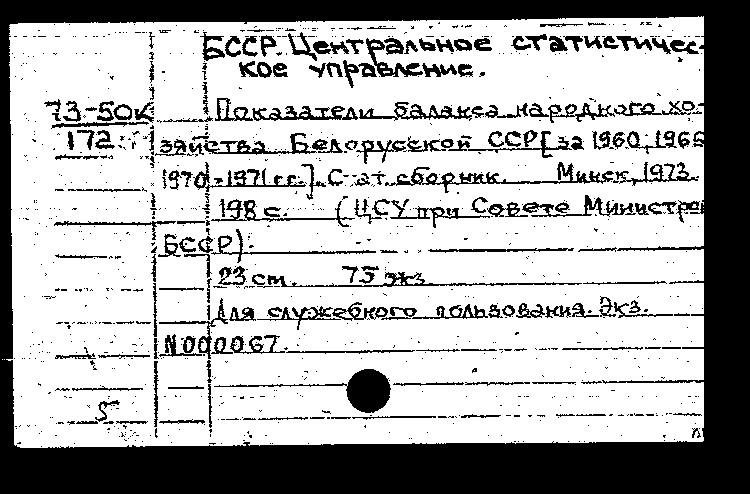 БССР. Центральное статистичес-
кое управление.
73-50к
172
Показатели баланса народного хо-
зяйства Белорусской ССР [за 1960, 1965
1970-1971 гг.]. Стат. сборник. Минск, 1973.
198 с. (ЦСУ при Совете Министров
БССР).
23 см. 75 экз
Для служебного пользования. Экз.
N000067.
5